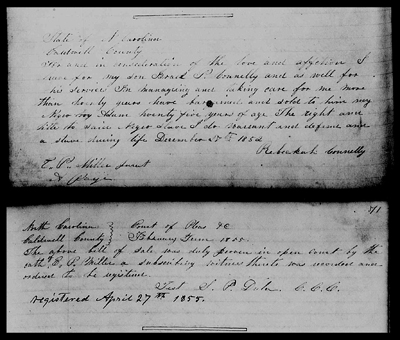 State of N Carolina
Caldwell County
For and in consideration of the love and affection I
have for my son Horace P Connelly and as well for
his service in managing and taking care for me more
than twenty years have bargained and sold to him my
Negro boy Adam twenty five years of age The right and
title to said Negro slave I do warrant and defend and
a slave during life December 25th 1854
Rebeckah Connelly
E. P. Miller Jurat
71
North Carolina } Court of Pleas &C
Caldwell County } February Term 1855.
The above bill of sale was duly proven in open court by the
oath of E. P. Miller a subscribing witness thereto was recorded and
ordered to be registered.
Test S. P. Dula C.C.C.
registered April 27th 1855.